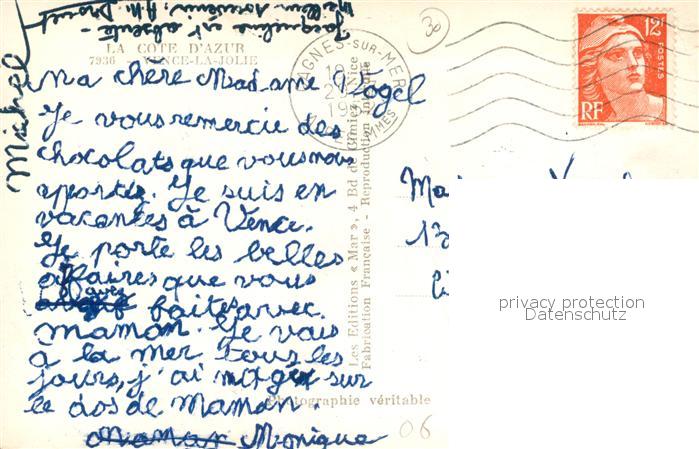 Jacqueline est absente -
Meilleur souvenir,
LA COTE D'AZUR
7936 - VENCE-LA-JOLIE
30
CAGNES-SUR-MER
12F
POSTES
RF
Michel
Ma chère Madame Vogel
Je vous remercie des
chocolats que vous nous
aportez. Je suis en
vacances à Vence.
Je porte les belles
affaires que vous
avez
faites avec
maman. Je vais
à la mer tous les
jours, j'ai nagé sur
le dos de Maman.
Monique
Les Editions « Mar », 4 Bd de Cimiez, Nice
Fabrication Française - Reproduction Interdite
Photographie véritable
06
13
privacy protection
Datenschutz